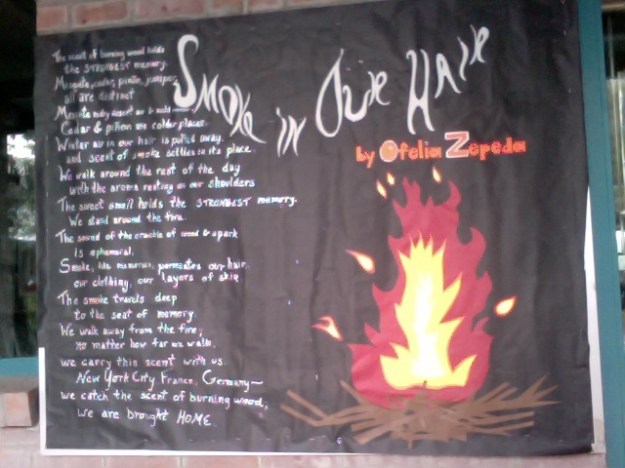 Smoke in Our Hair
by Ofelia Zepeda
The scent of burning wood holds
the STRONGEST memory.
Mesquite, cedar, piñon, juniper,
all are distinct
Mesquite dry desert air & mild
Cedar & piñon are colder places.
Winter air in our hair is pulled away,
and scent of smoke settles in its place.
We walk around the rest of the day
with the aroma resting on our shoulders
The sweet smell holds the STRONGEST memory.
We stand around the fire.
The sound of the crackle of wood & spark
is ephemeral.
Smoke, like memories, permeates our hair,
our clothing, our layers of skin
The smoke travels deep
to the seat of memory.
We walk away from the fire;
no matter how far we walk,
we carry this scent with us.
New York City, France, Germany—
we catch the scent of burning wood;
we are brought HOME.